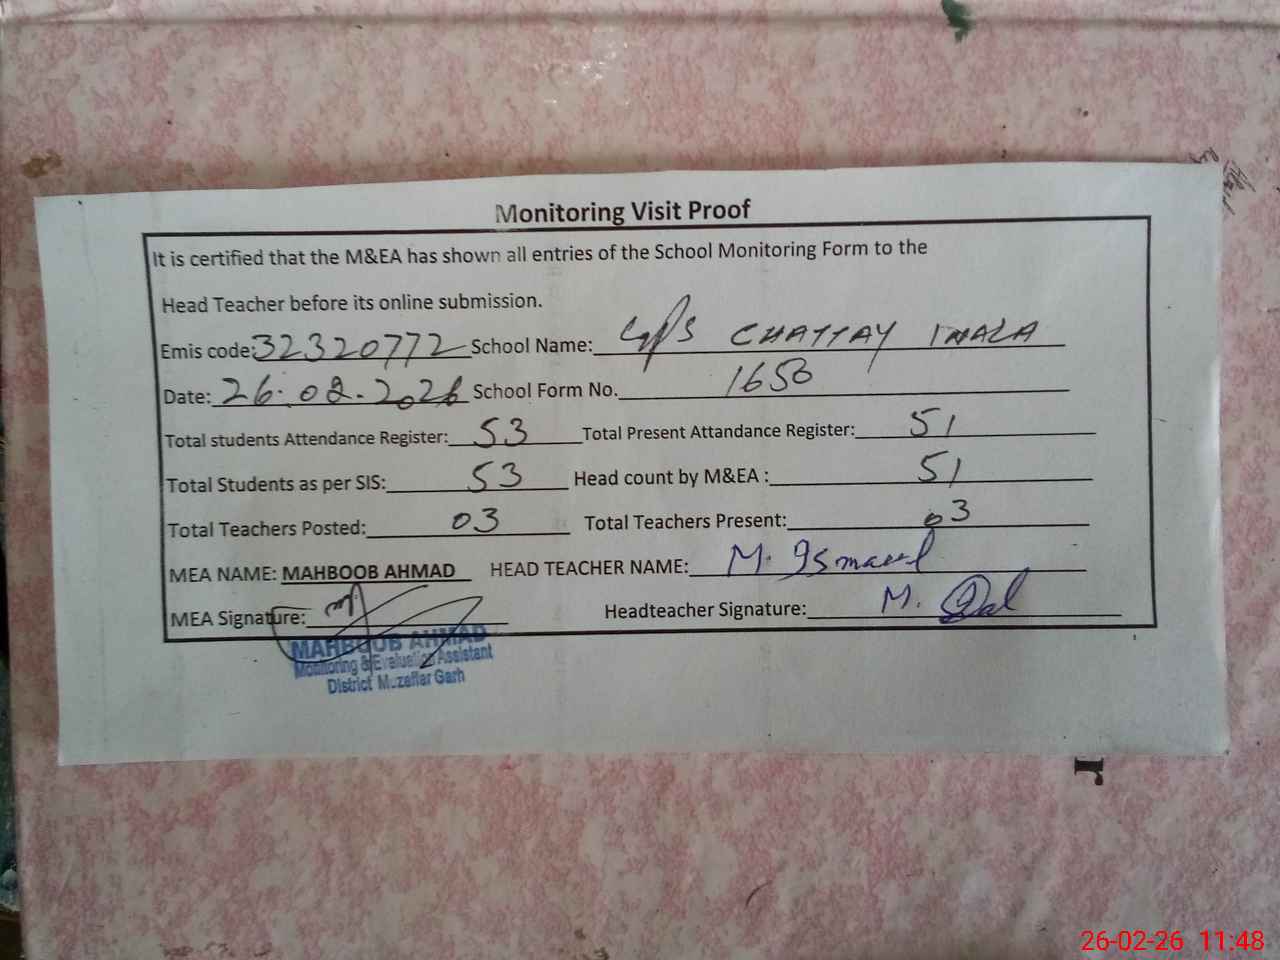 Monitoring Visit Proof
It is certified that the M&EA has shown all entries of the School Monitoring Form to the
Head Teacher before its online submission.
Emis code: 32320772 School Name: GPS CHATTAY WALA
Date: 26.02.2026 School Form No. 1650
Total students Attendance Register: 53 Total Present Attandance Register: 51
Total Students as per SIS: 53 Head count by M&EA : 51
Total Teachers Posted: 03 Total Teachers Present: 03
MEA NAME: MAHBOOB AHMAD HEAD TEACHER NAME: M. Ismaeel
MEA Signature: Headteacher Signature: M.
MAHBOOB AHMAD
Monitoring & Evaluation Assistant
District Muzaffar Garh
r
26-02-26 11:48